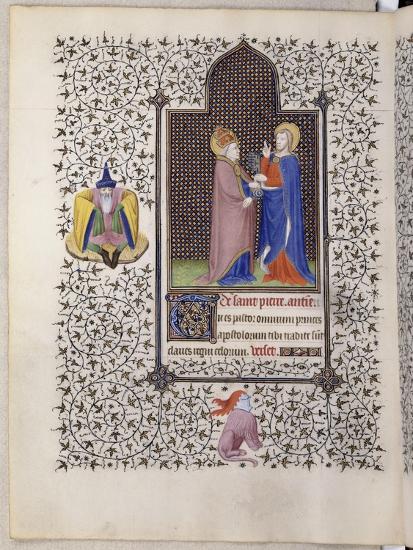 De saint pierre. antien͛.
Tu es pastor omnium princeps
apostolorum tibi tradite sūt
claves regni celorum. Verset.